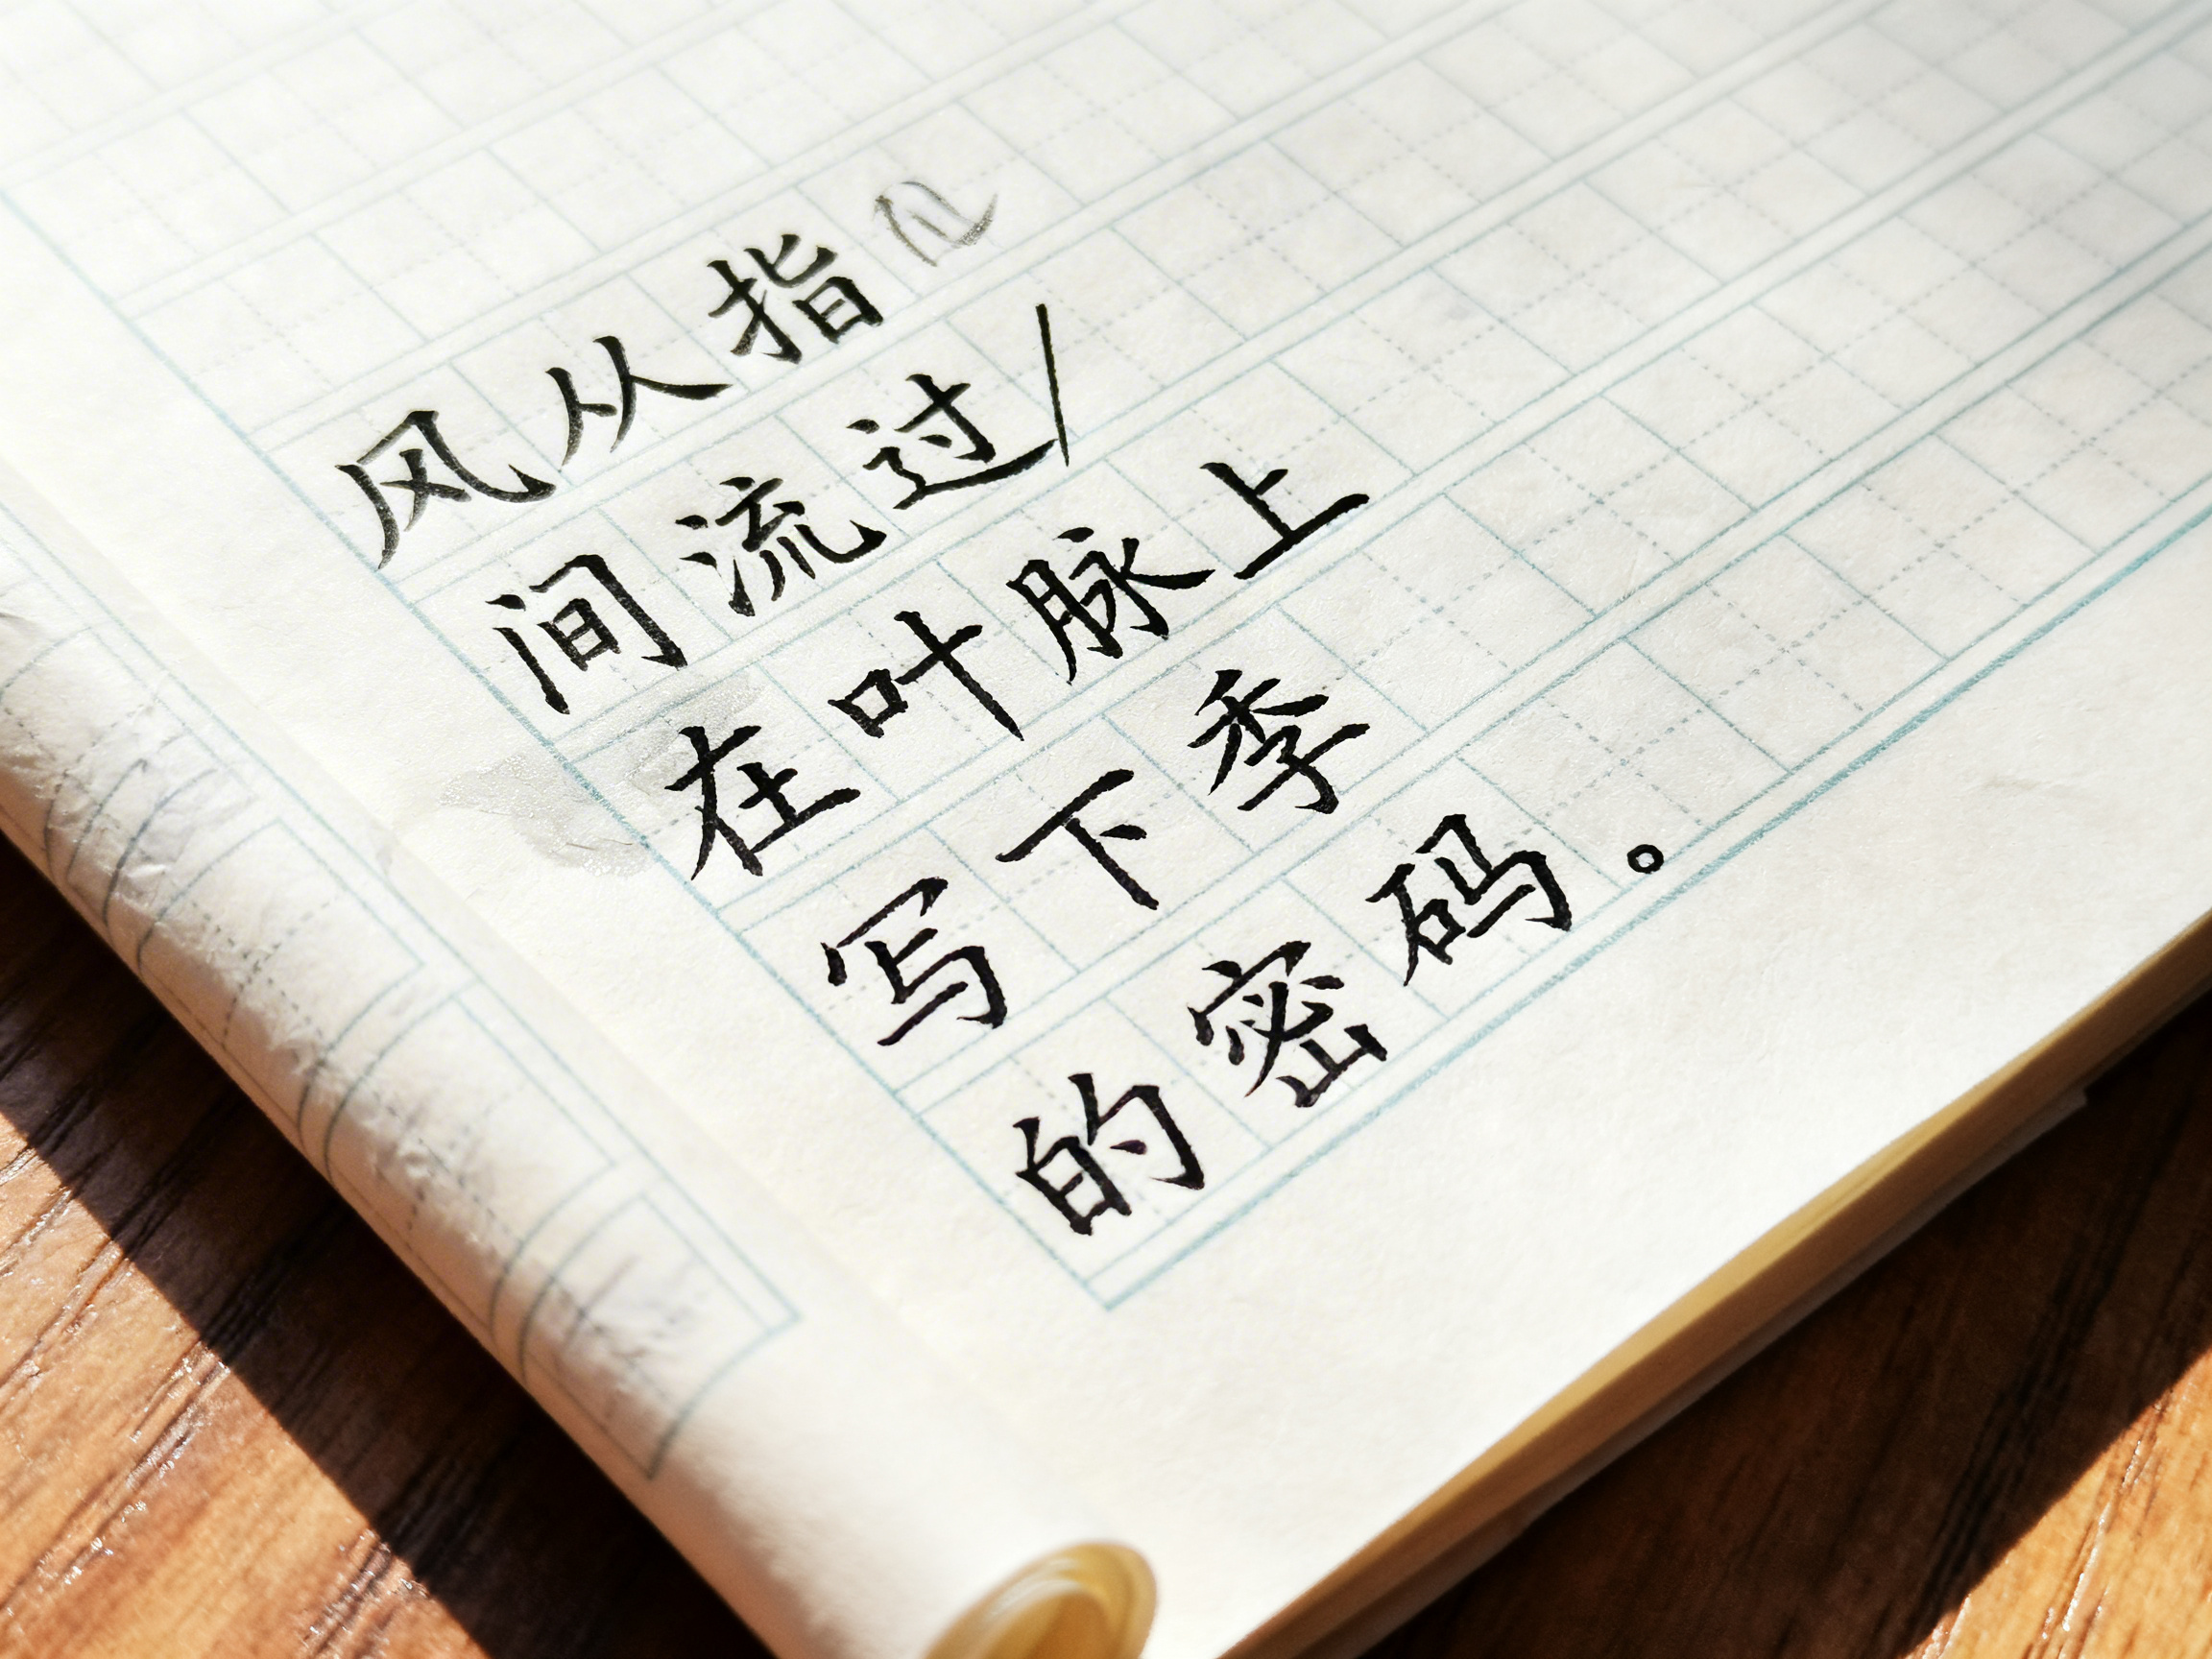 风从指
间流过/
在叶脉上
写下季
的密码。